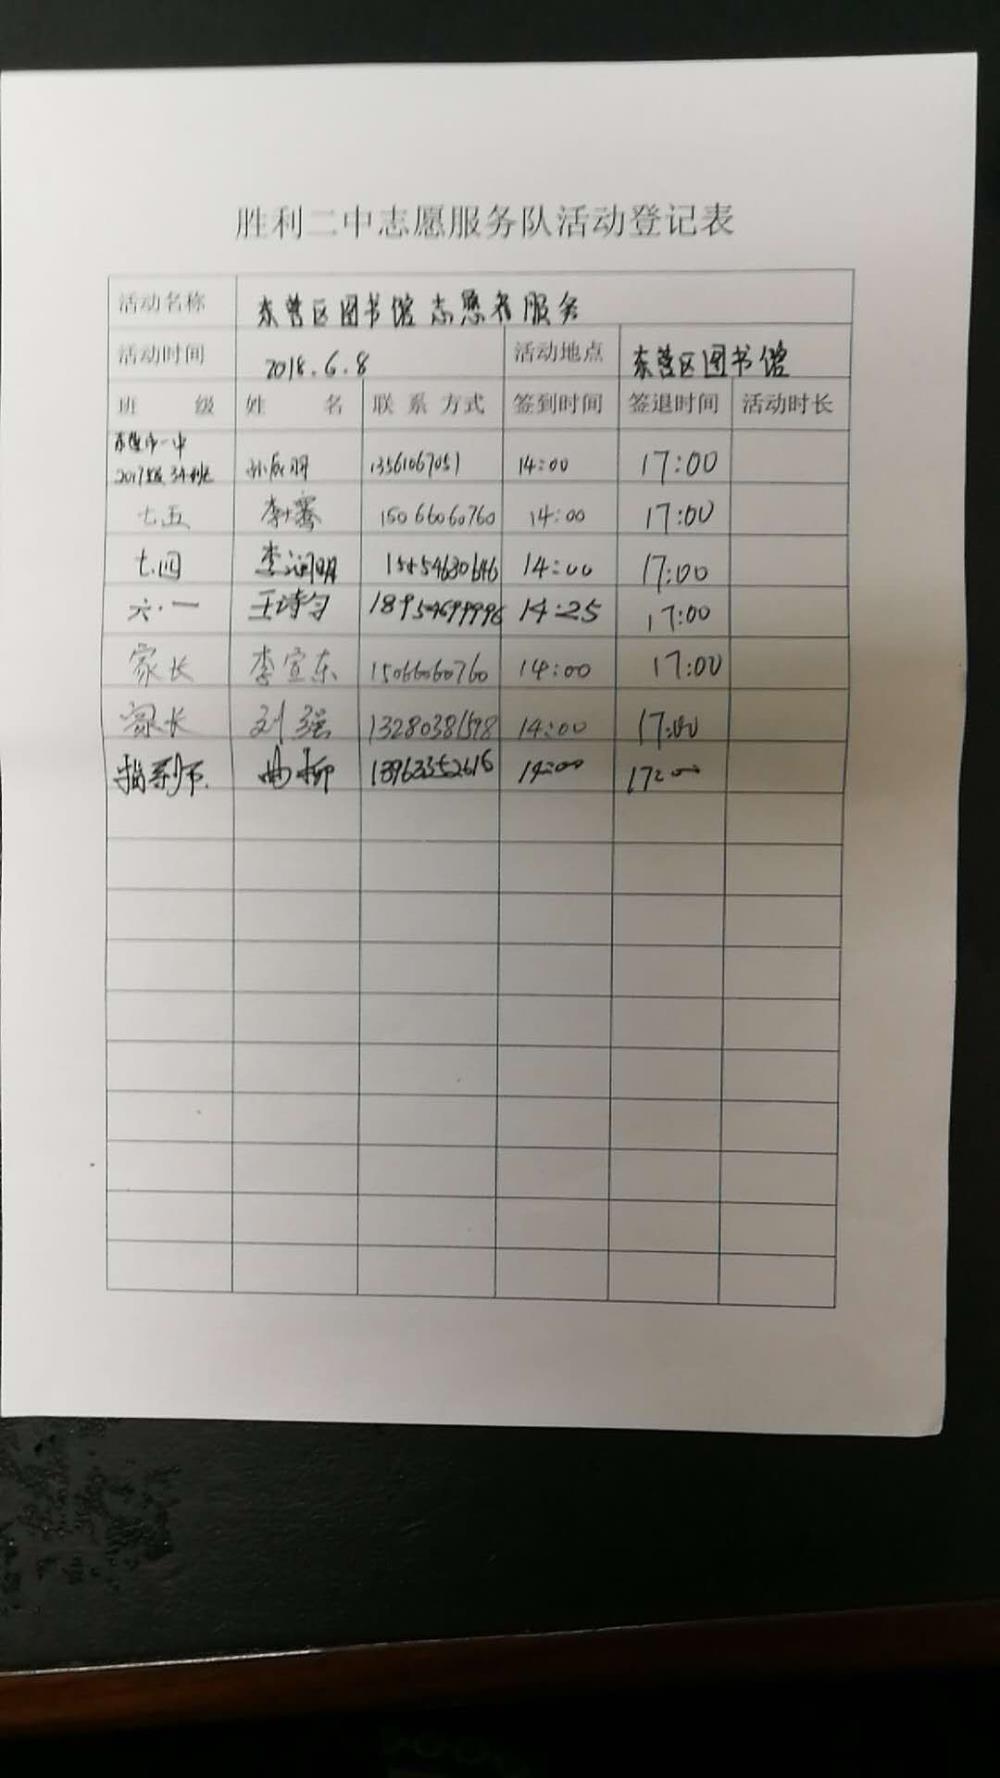 胜利二中志愿服务队活动登记表
活动名称 东营区图书馆志愿者服务
活动时间 2018.6.8 活动地点 东营区图书馆
班级 姓名 联系方式 签到时间 签退时间 活动时长
东营市一中
2017级 13561067051 14:00 17:00
七五 李骞 15066060760 14:00 17:00
七.四 李润明 15454630646 14:00 17:00
六.一 王诗匀 18954699996 14:25 17:00
家长 李宣东 15066060760 14:00 17:00
家长 刘强 13280381598 14:00 17:00
指导师. 曲柳 13963352616 14:00 17:00